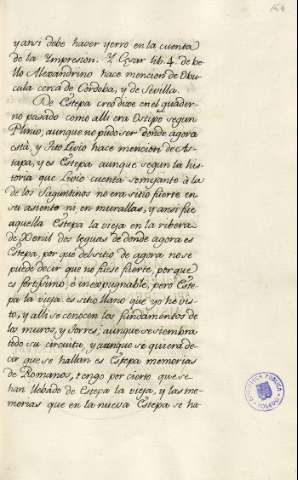 y ansi debe haver yerro en la cuenta
de la Ympresson. Y Cesar lib. 4. de be
llo Alexandrino hace mencion de Obu
cula cerca de Cordoba, y de Sevilla.
De Estepa creo dixe en el quader
no pasado como alli era Ostipo segun
Plinio, aunque no pudo ser donde agora
està, y Tito Livio hace mencion de As
tapa, y es Estepa aunque segun la his
toria que Livio cuenta semejante à la
de los Saguntinos no era sitio fuerte en
su asiento ni en murallas, y ansi fue
aquella Estepa la vieja en la ribera
de Xenil dos leguas de donde agora es
Estepa, por què del sitio de agora no se
puede decir que no fuese fuerte, por que
es fortissimo, è inexpugnable, pero Este
pa la vieja es sitio llano que yo he vis
to, y alli se conocen los fundamentos de
los muros, y torres, aunque se siembra
todo su circuito, y aunque se quiera de
cir que se hallan es Estepa memorias
de Romanos, tengo por cierto que se
han llebado de Estepa la vieja, y las me
morias que en la nueva Estepa se ha
BIBLIOTECA PUBLICA
TOLEDO